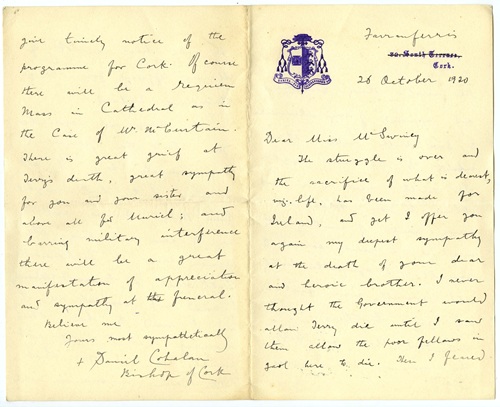 Farranferris
20 South Terrace,
Cork.
26 October 1920
Dear Miss McSwiney
The struggle is over and
the sacrifice of what is dearest,
viz. life, has been made for
Ireland, and yet I offer you
again my deepest sympathy
at the death of your dear
and heroic brother. I never
thought the Government would
allow Terry die until I saw
them allow the poor fellows in
gaol here to die. Then I feared
give timely notice of the
programme for Cork. Of course
there will be a requiem
Mass in Cathedral as in
the Case of Mr. McCurtain.
There is great grief at
Terry's death, great sympathy
for you and your sister and
above all for Muriel; and
barring military interference
there will be a great
manifestation of appreciation
and sympathy at the funeral.
Believe me
Yours most sympathetically
+ Daniel Cohalan
Bishop of Cork